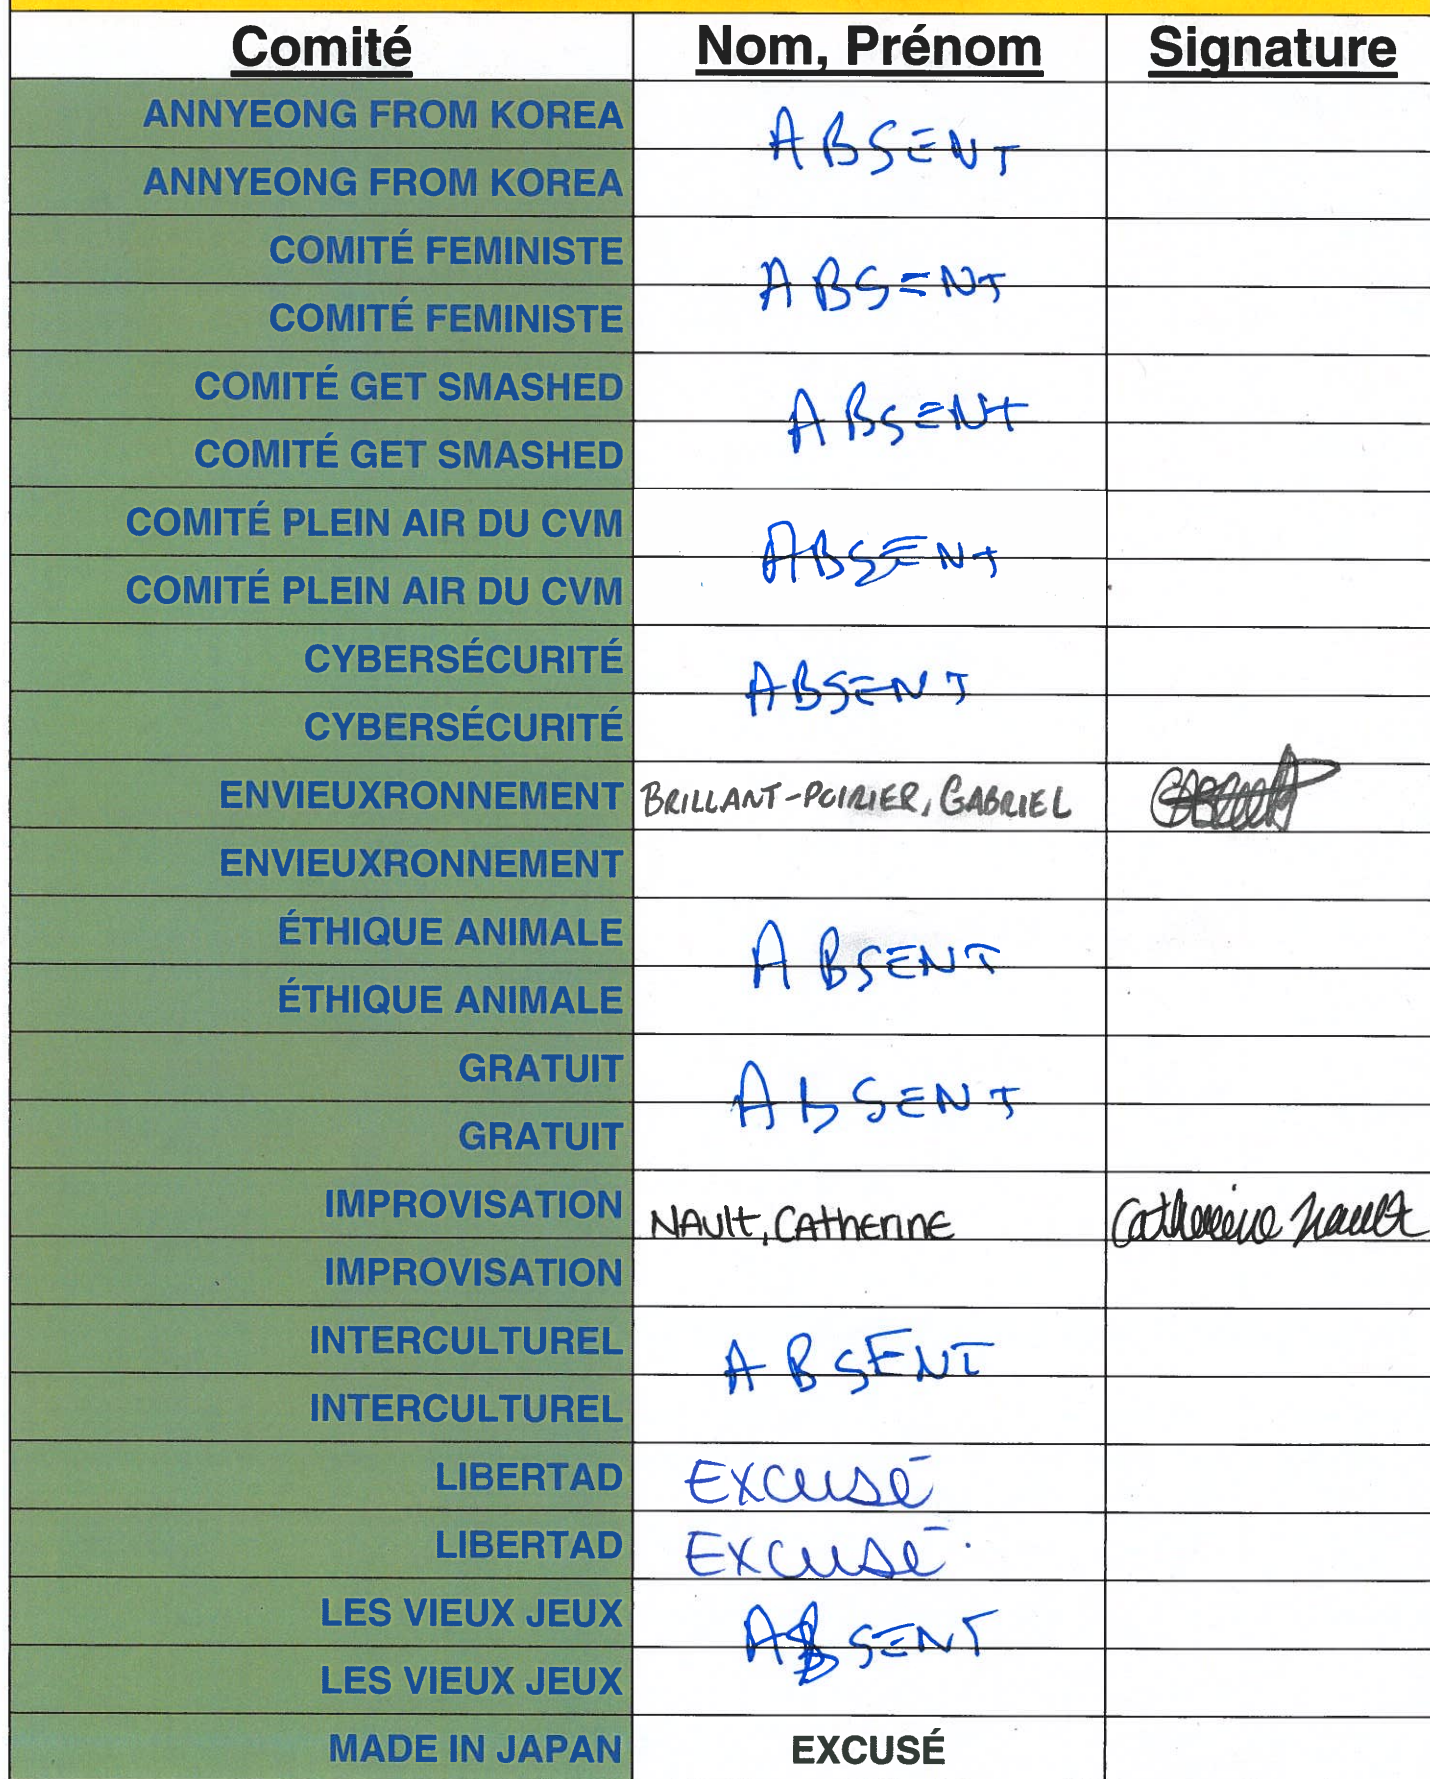 Comité Nom, Prénom Signature
ANNYEONG FROM KOREA
ABSENT
ANNYEONG FROM KOREA
COMITÉ FEMINISTE
ABSENT
COMITÉ FEMINISTE
COMITÉ GET SMASHED
ABSENT
COMITÉ GET SMASHED
COMITÉ PLEIN AIR DU CVM
ABSENT
COMITÉ PLEIN AIR DU CVM
CYBERSÉCURITÉ
ABSENT
CYBERSÉCURITÉ
ENVIEUXRONNEMENT BRILLANT-POIRIER, GABRIEL
ENVIEUXRONNEMENT
ÉTHIQUE ANIMALE
ABSENT
ÉTHIQUE ANIMALE
GRATUIT
AbSENT
GRATUIT
IMPROVISATION NAULT, CATHERINE Catherine Nault
IMPROVISATION
INTERCULTUREL
ABSENT
INTERCULTUREL
LIBERTAD Excusé
LIBERTAD Excusé
LES VIEUX JEUX
ABSENT
LES VIEUX JEUX
MADE IN JAPAN EXCUSÉ